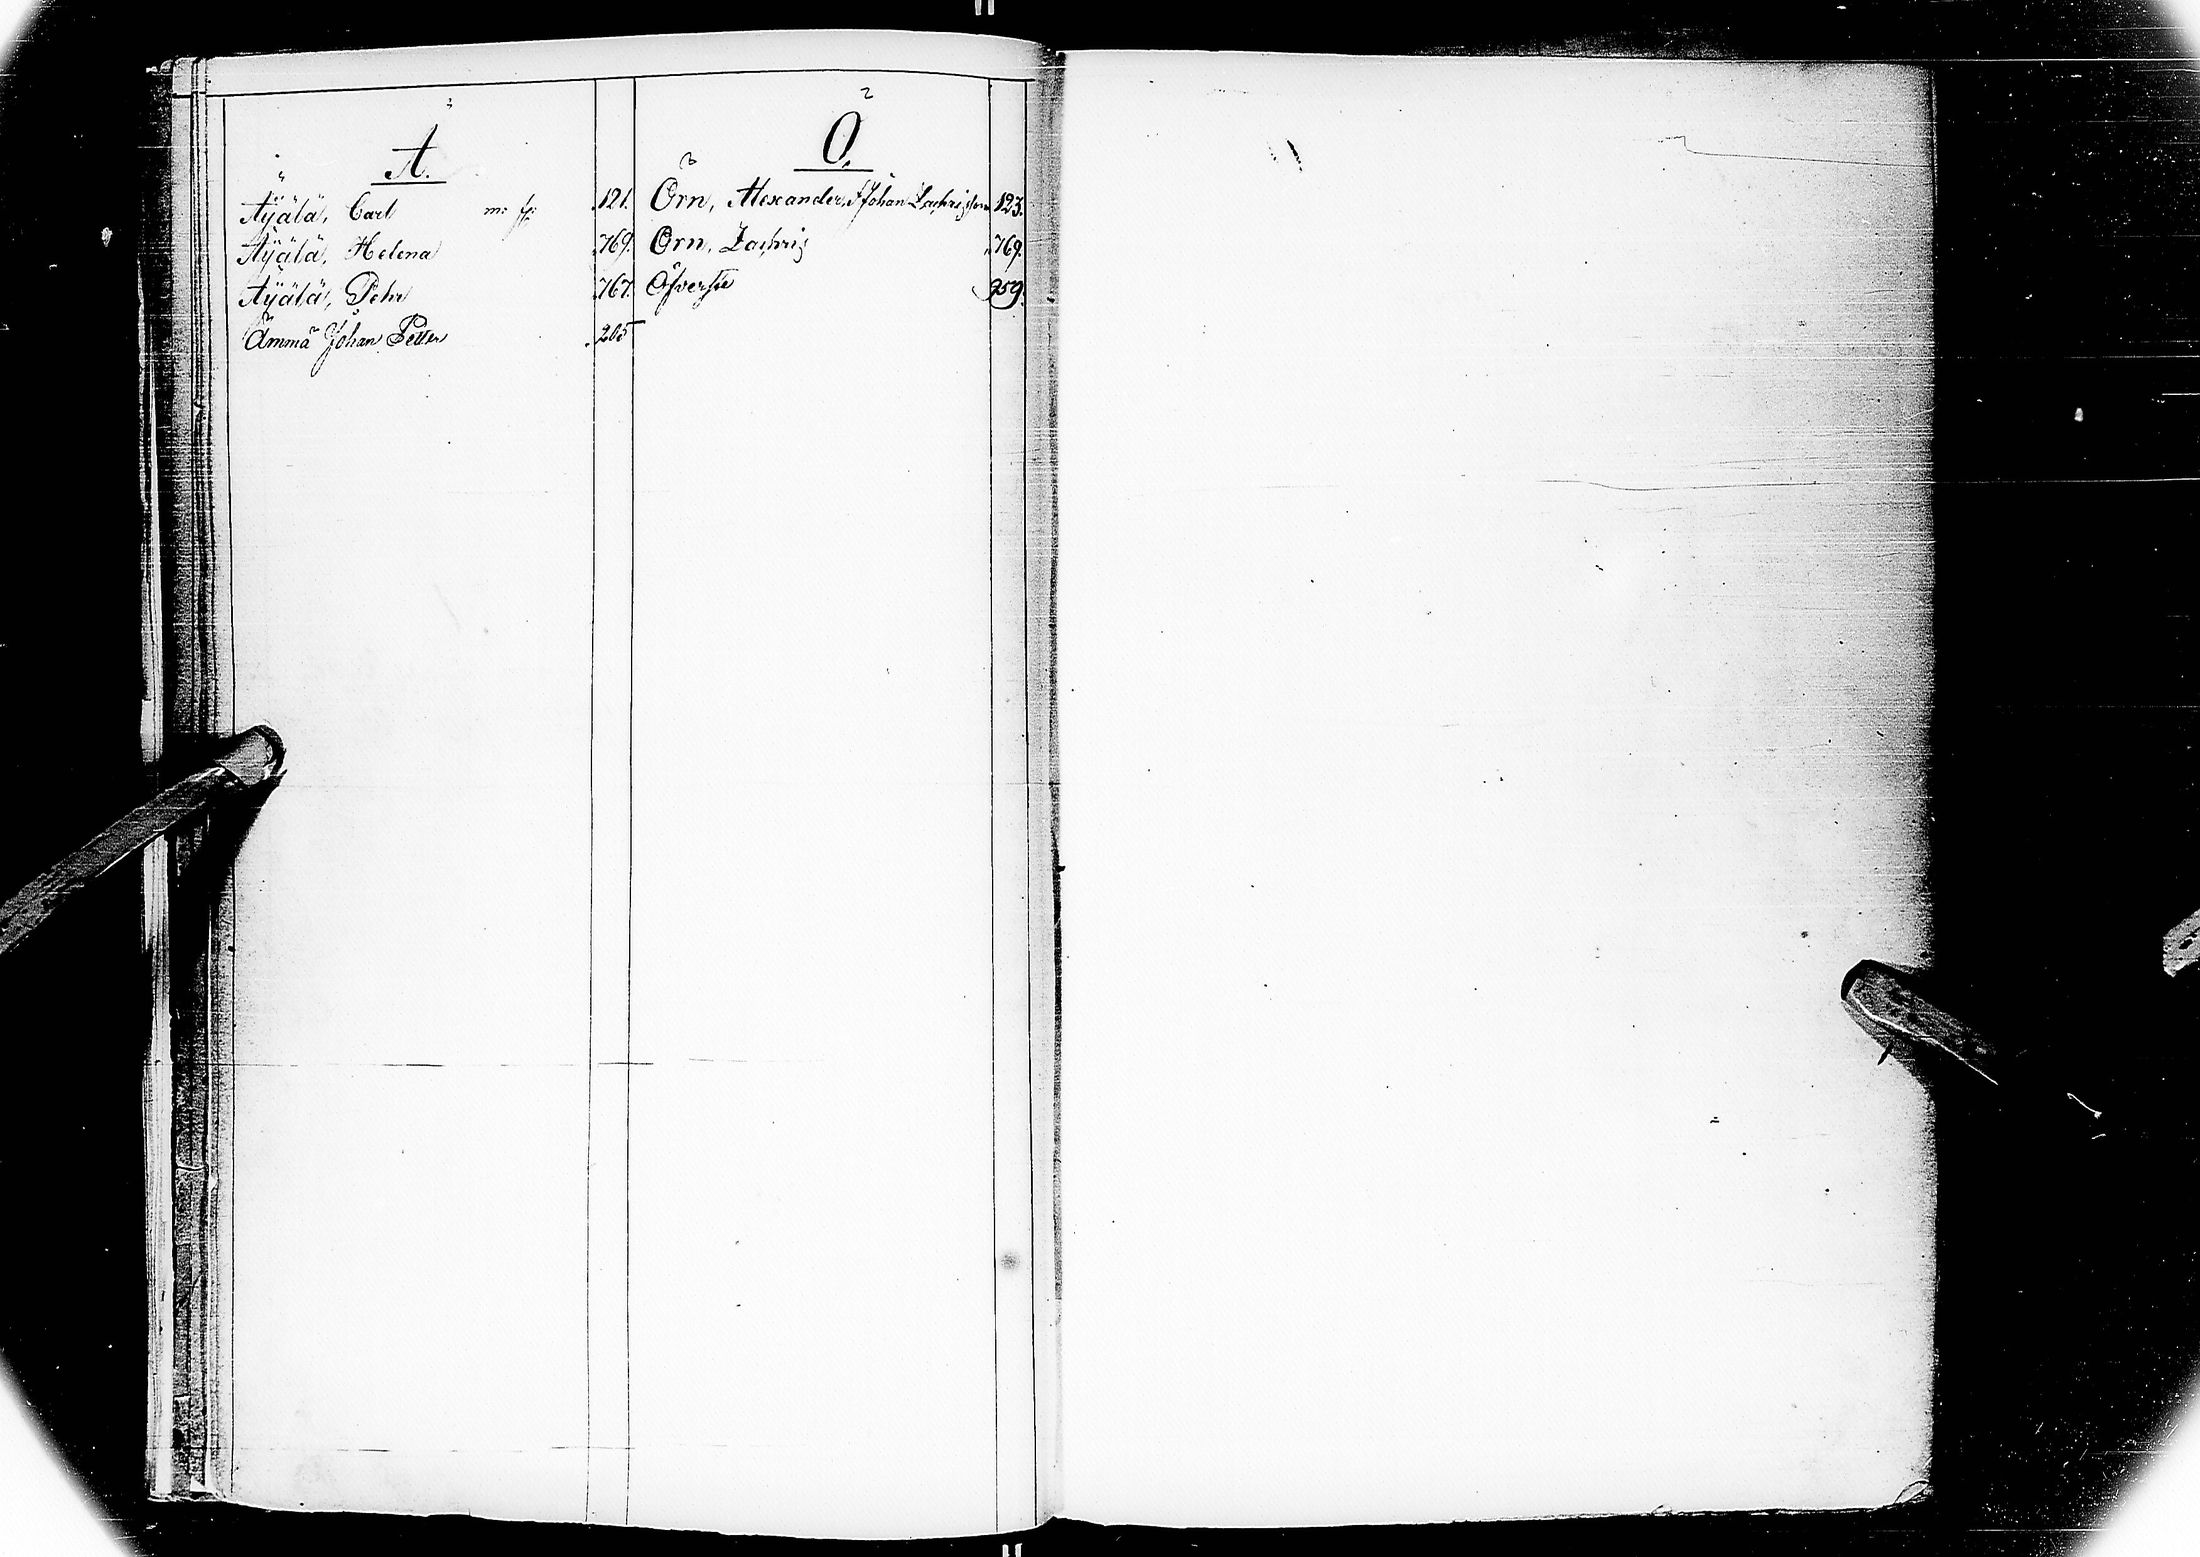 Ä.
Äyälä, Carl m: fl: 121.
Äÿälä, Helena 769.
Äÿälä, Pehr 767.
Ämmä Johan Petter 205
Ö.
Örn, Alexander, Johan Zachrisson 123.
Örn, Zachris 769.
Öfverste 959.